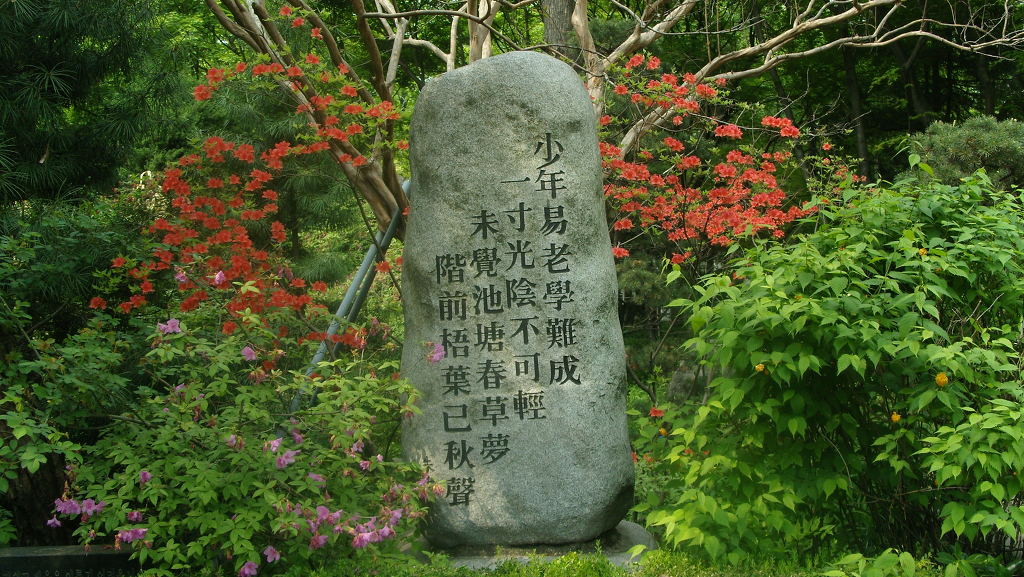 少年易老學難成
一寸光陰不可輕
未覺池塘春草夢
階前梧葉已秋聲